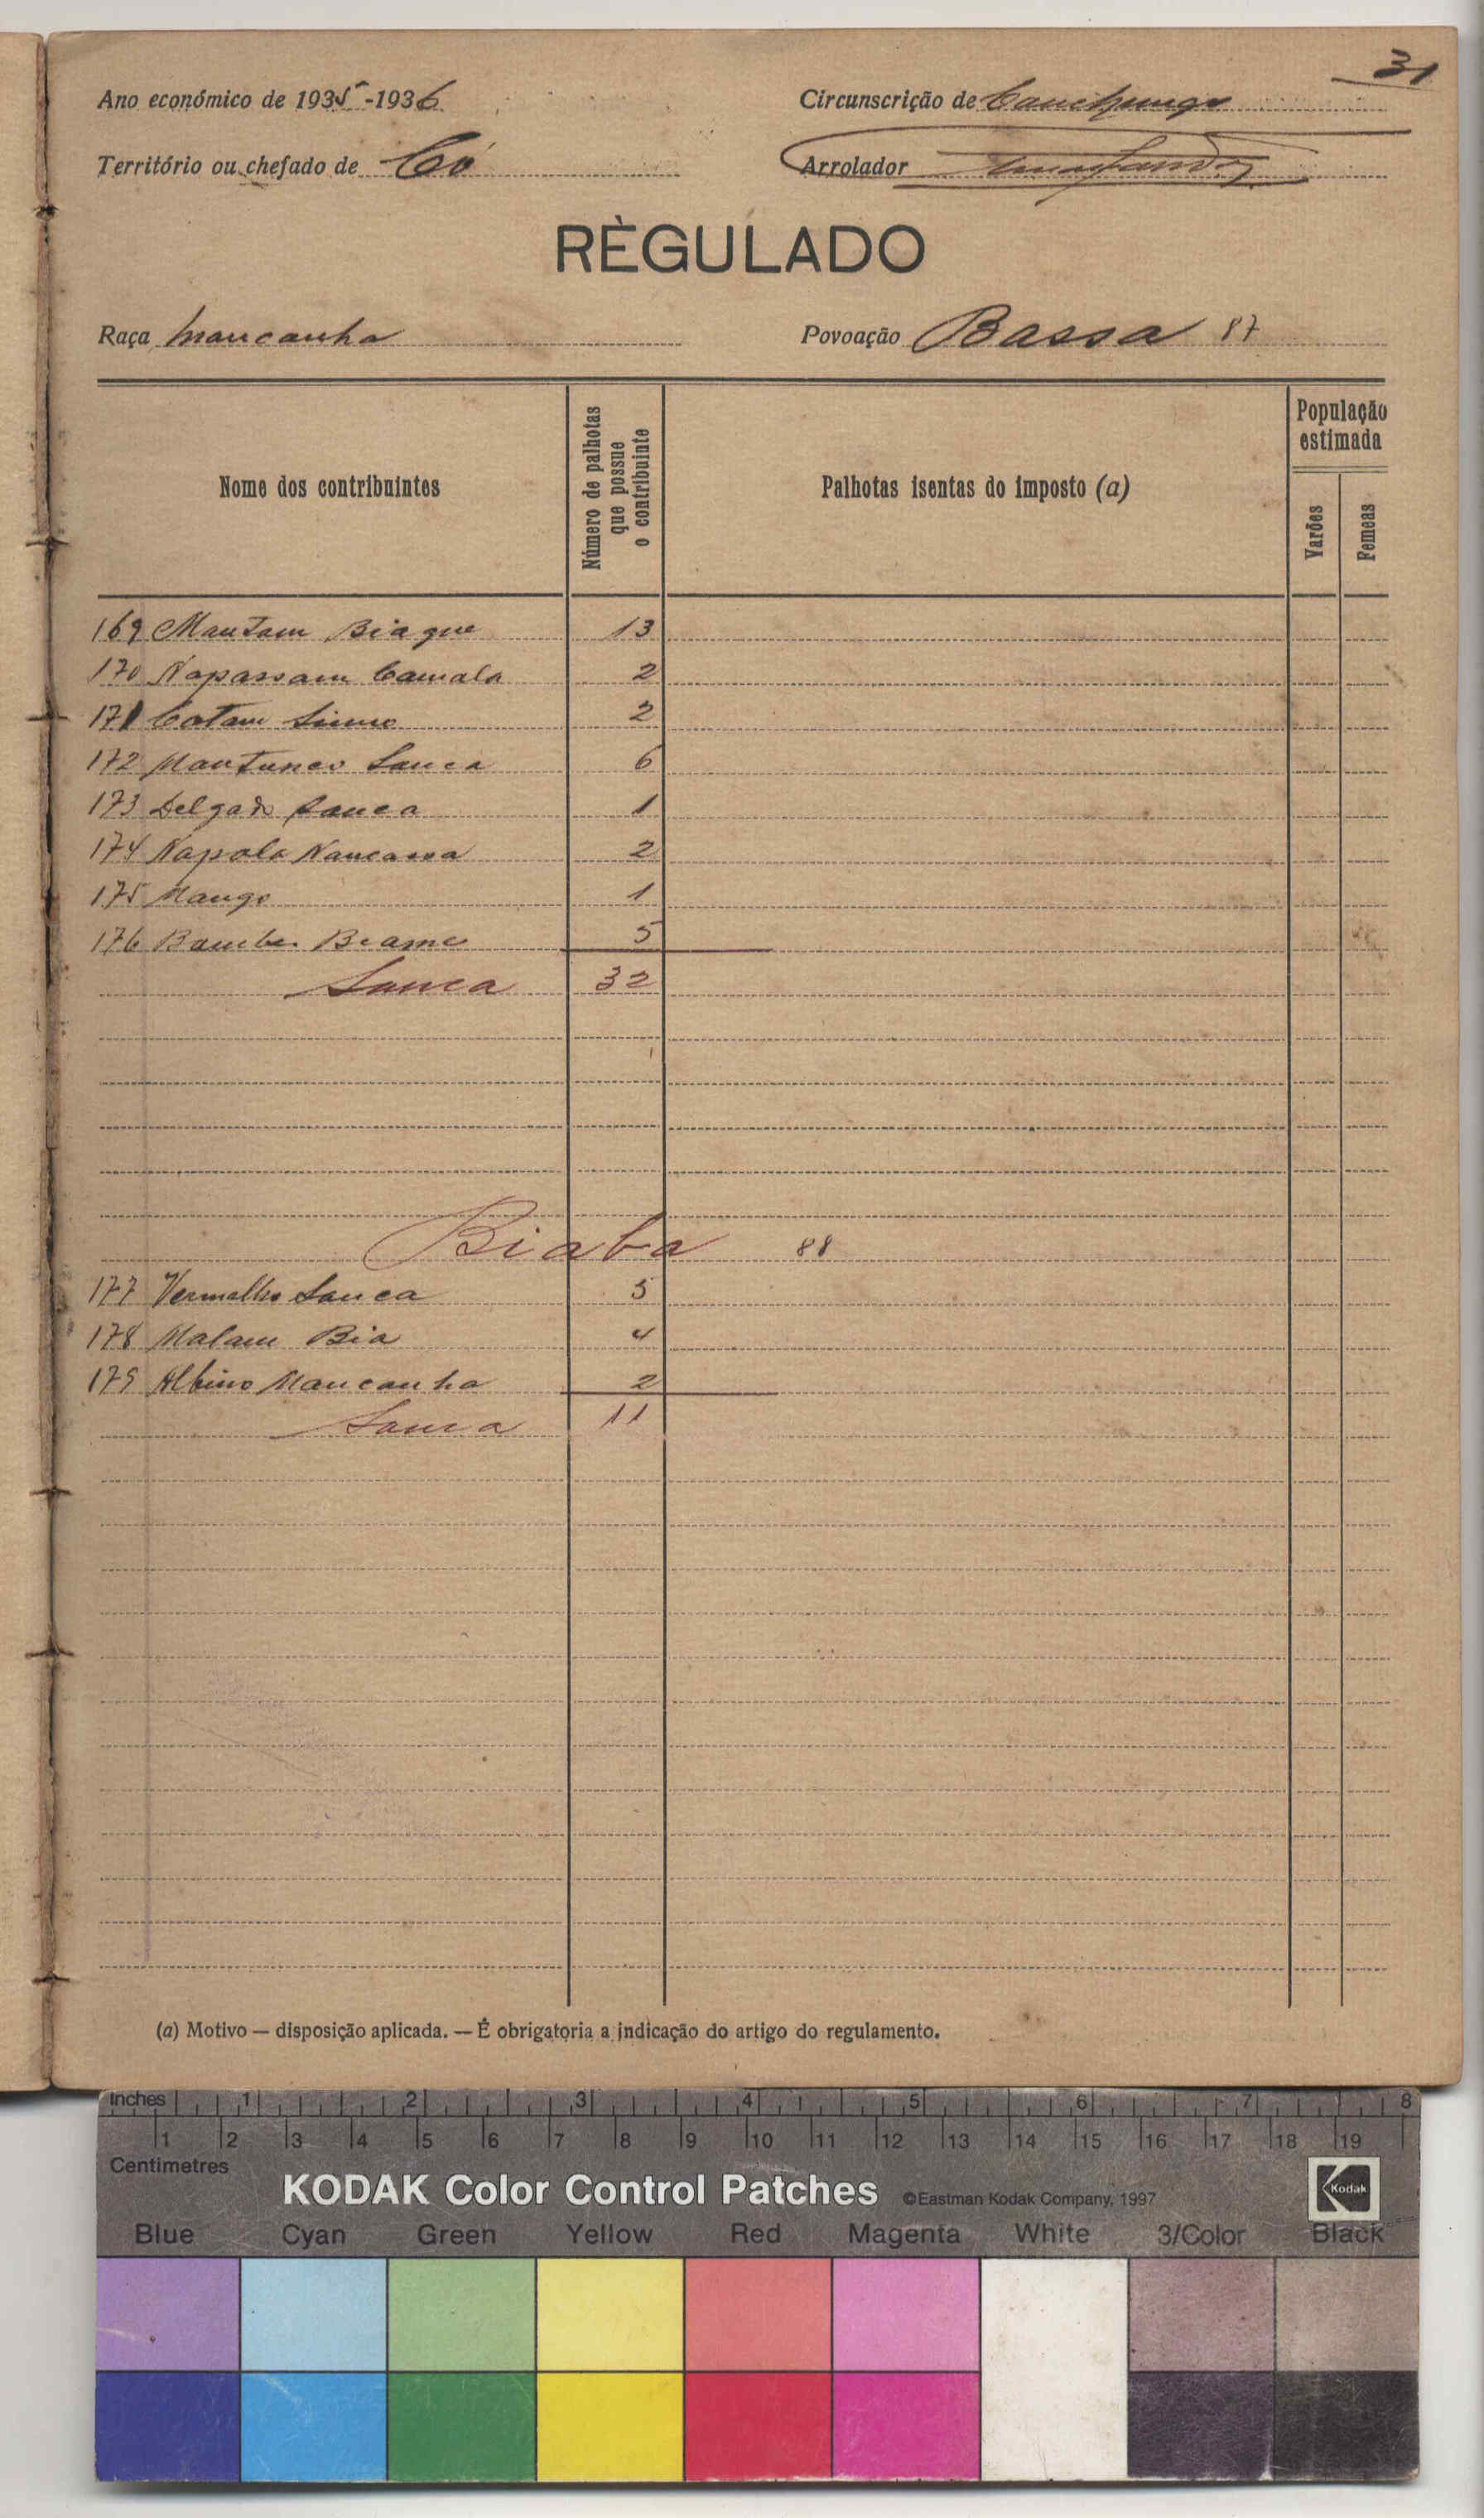 31
Ano económico de 1935-1936 Circunscrição de Canchungo
Território ou chefado de Có Arrolador
RÈGULADO
Raça Mancanha Povoação Bassa 87
Nome dos contribuintes
Número de palhotas que possue o contribuinte
Palhotas isentas do imposto (a)
População estimada
Varões
Femeas
169 Mantam Biague 13
170 Napassam Camala 2
171 Catam 2
172 Mantunco Sanca 6
173 Delgado Sanca 1
174 Napola Nancassa 2
175 Mango 1
176 Bambe Biame 5
Soma 32
Biaba 88
177 Vermelho Sanca 5
178 Malam Bia 4
179 Albino Mancanha 2
Soma 11
(a) Motivo — disposição aplicada. — É obrigatoria a indicação do artigo do regulamento.
Inches 1 2 3 4 5 6 7 8
1 2 3 4 5 6 7 8 9 10 11 12 13 14 15 16 17 18 19
Centimetres
KODAK Color Control Patches ©Eastman Kodak Company, 1997 Kodak
Blue Cyan Green Yellow Red Magenta White 3/Color Black